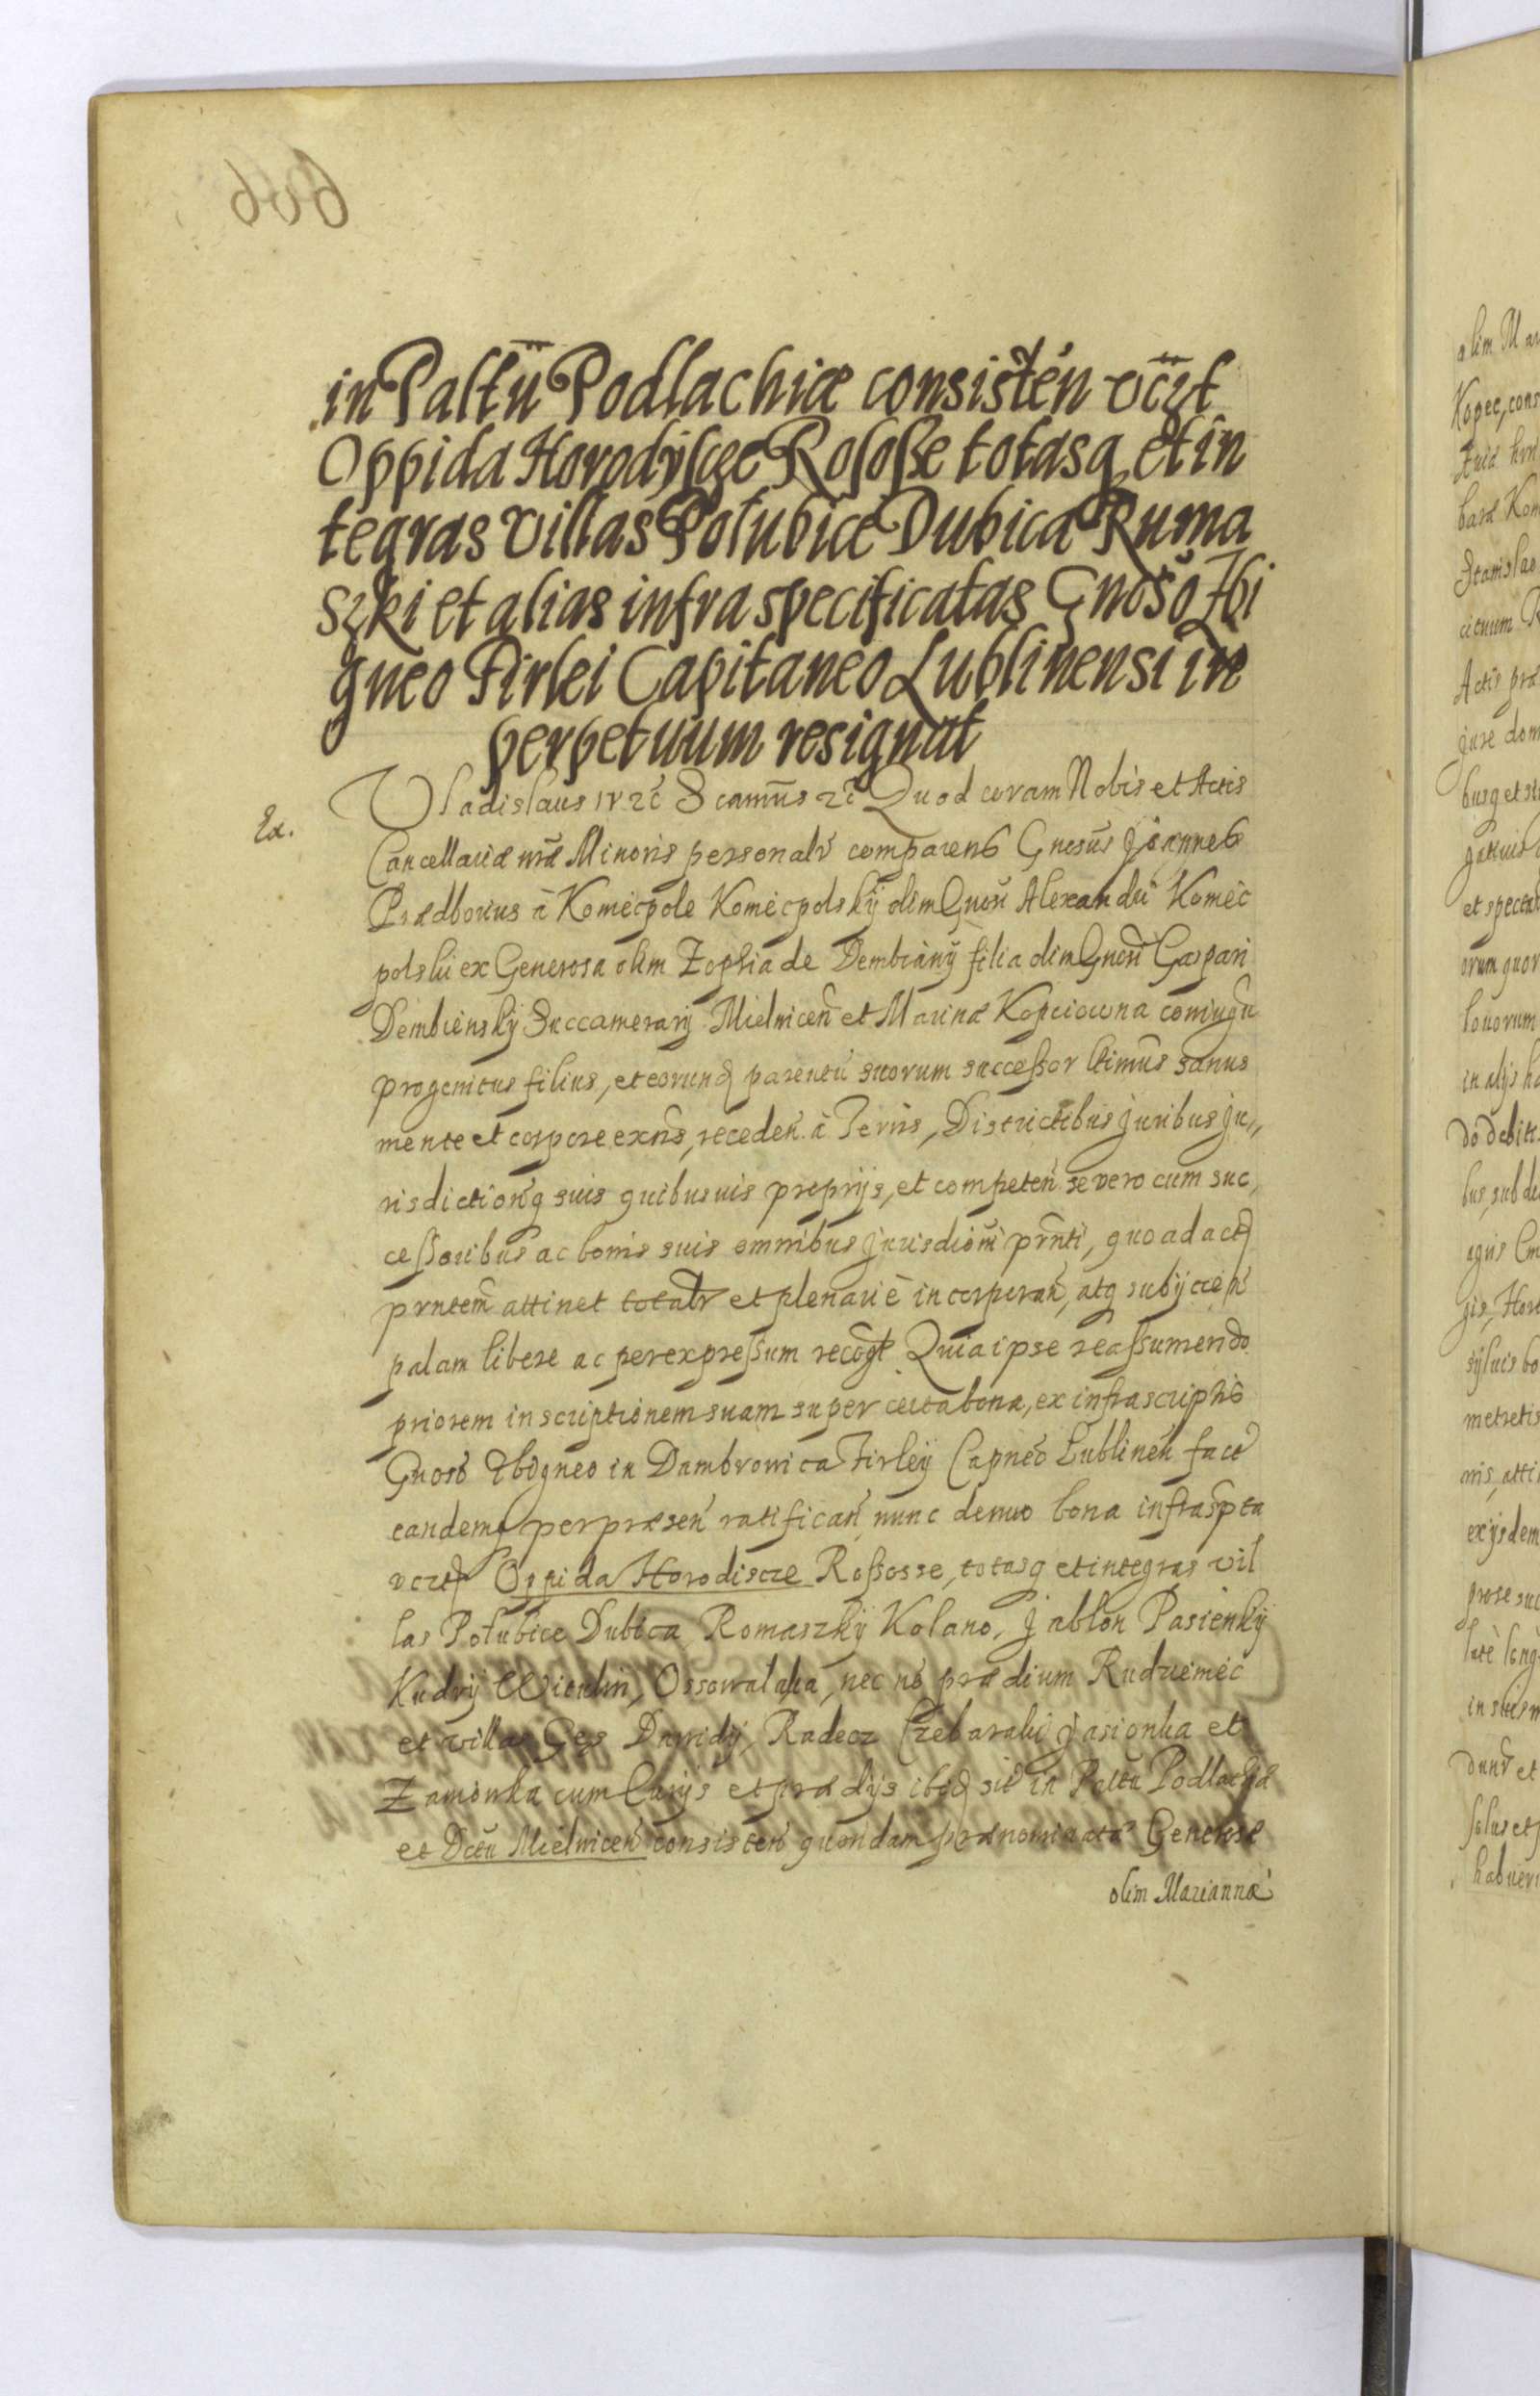 in Paltũ Podlachiæ consistén vc̃zt
Oppida Horodyscze Rososße totasq et in
tegras villas Połubice Dubica Ruma
szki et alias infra specificatas Gnoso Zbi
gneo Firlei Capitaneo Lublinensi in
perpetuum resignat
Ex.
Vladislaus IV zc̃ Scamus zc̃ Quod coram Nobis et Actis
Cancellariæ nr̃æ Minoris personalr̃ comparens Gnosus Joannes
Prædborius à Koniecpole Koniecpolskÿ olim Gnosi Alexandri Koniec
polski ex Generosa olim Zophia de Dembianÿ filia olim Gnosi Gaspari
Dembienskÿ Succamerarÿ Mielnicen̄ et Marinæ Kopciowna coniugũ
progenitus filius, et eorund parentũ suorum successor ltimus sanus
mente et corpore exñs, receden̄ à Terris, Districtibus juribus ju„
risdictionq suis quibusuis proprijs, et competen̄ se vero cum suc,
cessoribus ac bonis suis omnibus jurisdiõni prñti, quo ad act
prntem̃ attinet totalr̃ et plenariè incorporan̄, atq subijcien̄
palam libere ac per expressum recogt Quia ipse reassumendo
priorem inscriptionem suam super certa bona, ex infrascriptis
Gnoso Zbigneo in Dambrowica Firleÿ Capneo Lublinen̄ fact
eandemq per præsen̄ ratifican̄, nunc denuo bona infrasp̃ta
vczt Oppida Horodiscze Rossosse, totasq et integras vil
las Połubice Dubica, Romaszkÿ Kolano, Jabłon Pasienkÿ
Kudrÿ Wiculin, Ossowa laka, nec nõ prædium Rudziemiec
et villas Gęs Dawidÿ, Radecz Czebaraki Jasionka et
Zamowka cum Curijs et prædijs ibid sit in Paltũ Podlachiæ
et Dctũ Mielnicen̄ consisten̄ quondam prænominatæ Generosæ
olim Mariannæ